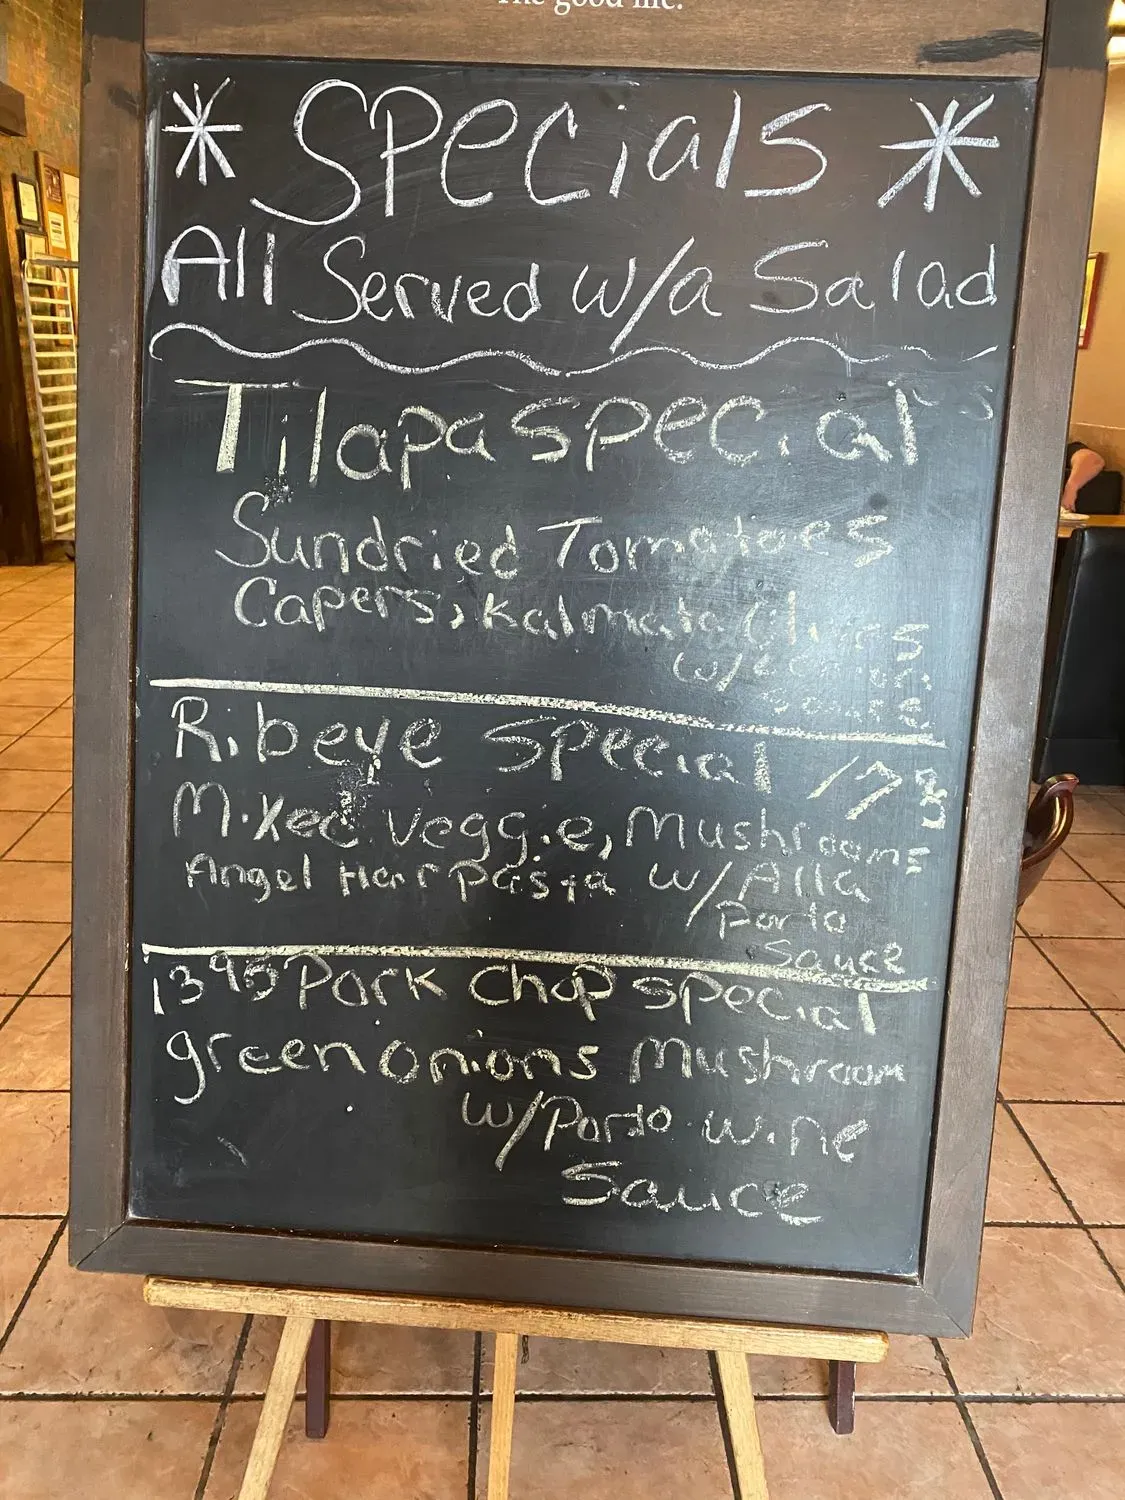 The good life.
* Specials *
All Served w/a Salad
Tilapa special
Sundried Tomatoes
Capers, Kalmata Olives
w/
Sauce
Ribeye Special 17
Mixed Veggie, Mushrooms
Angel Hair Pasta w/Alla
Porto
Sauce
1395 Pork Chop special
green onions Mushroom
w/Porto wine
Sauce